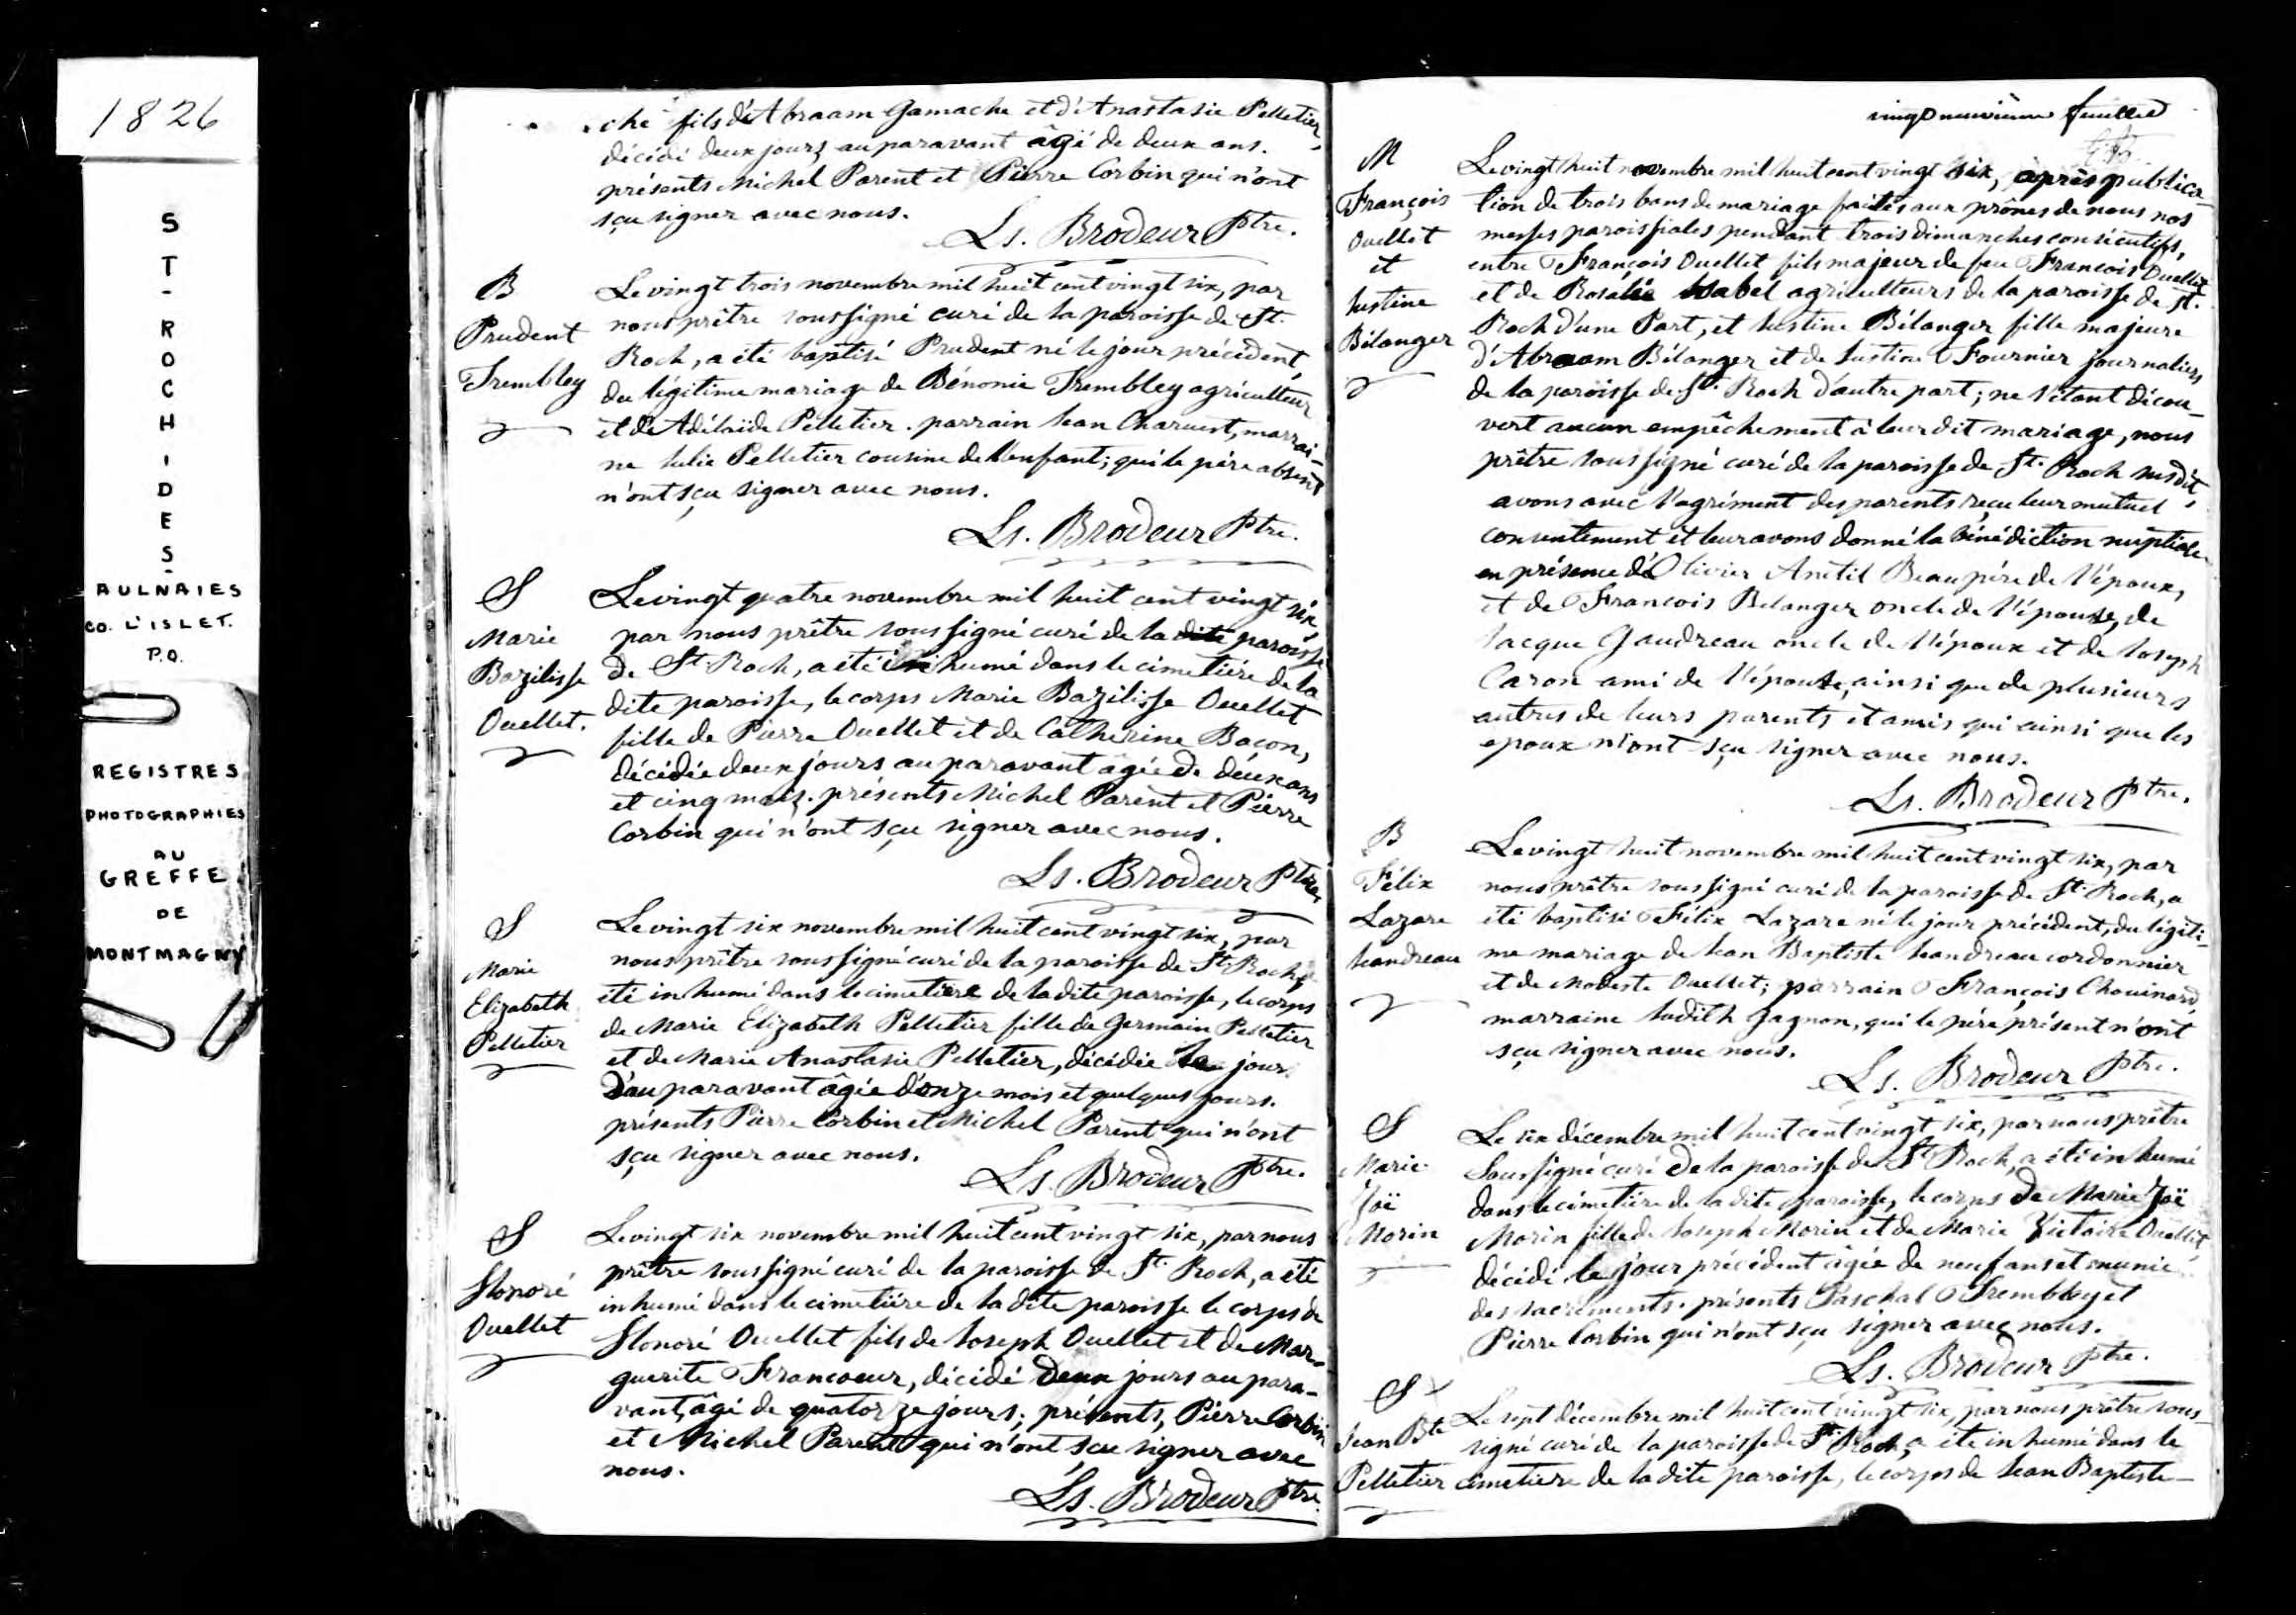 1826
S
T
-
R
O
C
H
-
D
E
S
-
AULNAIES
CO. L'ISLET.
P.Q.
REGISTRES
PHOTOGRAPHIES
AU
GREFFE
DE
MONTMAGNY
che fils d'Abraam Gamache et d'Anastasie Pelletier,
décédé deux jours auparavant âgé de deux ans.
présents Michel Parent et Pierre Corbin qui n'ont
sçu signer avec nous.
Ls. Brodeur Ptre.
B
Prudent
Trembley
Le vingt trois novembre mil huit cent vingt six, par
nous prêtre soussigné curé de la paroisse de St.
Roch, a été baptisé Prudent né le jour précédent,
du légitime mariage de Bénonie Trembley agriculteur
et de Adélaïde Pelletier. parrain Jean Charuest, marrai-
ne Julie Pelletier cousine de l'enfant; qui le père absent
n'ont sçu signer avec nous.
Ls. Brodeur Ptre.
S
Marie
Bazilisse
Ouellet.
Le vingt quatre novembre mil huit cent vingt six,
par nous prêtre soussigné curé de la dite paroisse
de St. Roch, a été inhumé dans le cimetière de la
dite paroisse, le corps Marie Bazilisse Ouellet
fille de Pierre Ouellet et de Catherine Bacon,
décédée deux jours auparavant âgée de deux ans
et cinq mois. présents Michel Parent et Pierre
Corbin qui n'ont sçu signer avec nous.
Ls. Brodeur Ptre.
S
Marie
Elizabeth
Pelletier
Le vingt six novembre mil huit cent vingt six, par
nous prêtre soussigné curé de la paroisse de St. Roch, a
été inhumé dans le cimetière de la dite paroisse, le corps
de Marie Elizabeth Pelletier fille de Germain Pelletier
et de Marie Anastasie Pelletier, décédée le jour
d'auparavant âgée d'onze mois et quelques jours.
présents Pierre Corbin et Michel Parent qui n'ont
sçu signer avec nous.
Ls. Brodeur Ptre.
S
Honoré
Ouellet
Le vingt six novembre mil huit cent vingt six, par nous
prêtre soussigné curé de la paroisse de St. Roch, a été
inhumé dans le cimetière de la dite paroisse le corps de
Honoré Ouellet fils de Joseph Ouellet et de Mar-
guerite Francoeur, décédé deux jours aupara-
vant, âgé de quatorze jours; présents, Pierre Corbin
et Michel Parent qui n'ont sçu signer avec
nous.
Ls. Brodeur Ptre.
vingt neuvième feuillet
M
François
Ouellet
et
Justine
Bélanger
Le vingt huit novembre mil huit cent vingt six, après publica-
tion de trois bans de mariage faites aux prônes de nous nos
messes paroissiales pendant trois dimanches consécutifs,
entre François Ouellet fils majeur de feu François Ouellet
et de Rosalie Isabel agriculteurs de la paroisse de St.
Roch d'une Part, et Justine Bélanger fille majeure
d'Abraam Bélanger et de Justine Fournier journaliers
de la paroisse de St. Roch d'autre part; ne s'étant décou-
vert aucun empêchement à leur dit mariage, nous
prêtre soussigné curé de la paroisse de St. Roch susdit,
avons avec l'agrément des parents reçu leur mutuel
consentement et leur avons donné la bénédiction nuptiale
en présence d'Olivier Anctil Beaupère de l'époux,
et de François Belanger oncle de l'épouse, de
Jacque Gaudreau oncle de l'époux et de Joseph
Caron ami de l'épouse, ainsi que de plusieurs
autres de leurs parents et amis qui ainsi que les
epoux n'ont sçu signer avec nous.
Ls. Brodeur Ptre.
B
Félix
Lazare
Jeandreau
Le vingt huit novembre mil huit cent vingt six, par
nous prêtre soussigné curé de la paroisse de St. Roch, a
été baptisé Félix Lazare né le jour précédent, du légiti-
me mariage de Jean Baptiste Jeandreau cordonnier
et de Modeste Ouellet; parrain François Chouinard,
marraine Judith Gagnon, qui le père présent n'ont
sçu signer avec nous.
Ls. Brodeur Ptre.
S
Marie
Zoë
Morin
Le six décembre mil huit cent vingt six, par nous prêtre
soussigné curé de la paroisse de St. Roch, a été inhumé
dans le cimetière de la dite paroisse, le corps de Marie Zoë
Morin fille de Joseph Morin et de Marie Ouellet
décédé le jour précédent âgée de neuf ans et munie
des sacrements. présents Paschal Trembley et
Pierre Corbin qui n'ont sçu signer avec nous.
Ls. Brodeur Ptre.
S
Jean Bte
Pelletier
Le sept décembre mil huit cent vingt six, par nous prêtre sous-
signé curé de la paroisse de St. Roch, a été inhumé dans le
cimetière de la dite paroisse, le corps de Jean Baptiste